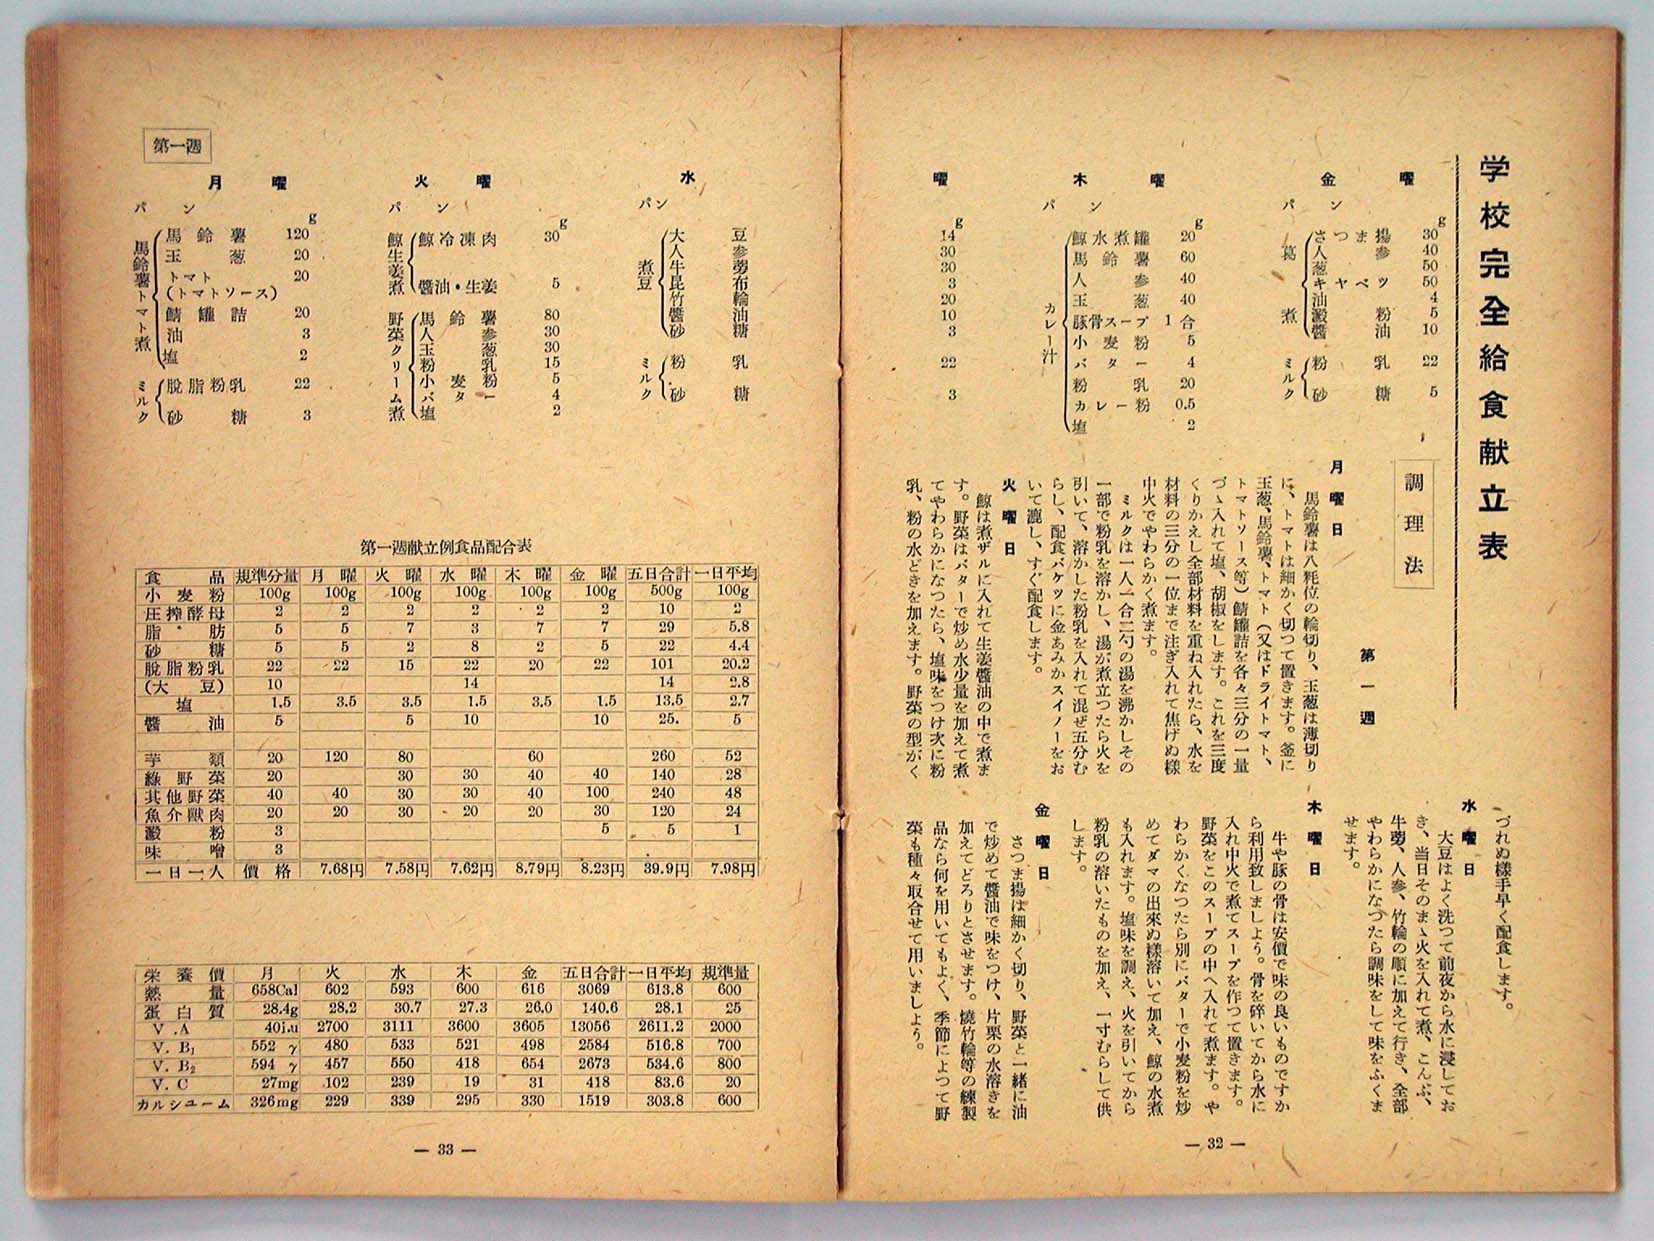 学校完全給食献立表
調理法
第一週
月曜日
馬鈴薯は八粍位の輪切り、玉葱は薄切り
に、トマトは細かく切つて置きます。釜に
玉葱、馬鈴薯、トマト（又はドライトマト、
トマトソース等）鯖罐詰を各々三分の一量
づゝ入れて塩、胡椒をします。これを三度
くりかえし全部材料を重ね入れたら、水を
材料の三分の一位まで注ぎ入れて焦げぬ樣
中火でやわらかく煮ます。
ミルクは一人一合二勺の湯を沸かしその
一部で粉乳を溶かし、湯が煮立つたら火を
引いて、溶かした粉乳を入れて混ぜ五分む
らし、配食バケツに金あみかスイノーをお
いて漉し、すぐ配食します。
火曜日
鯨は煮ザルに入れて生姜醬油の中で煮ま
す。野菜はバターで炒め水少量を加えて煮
てやわらかになつたら、塩味をつけ次に粉
乳、粉の水どきを加えます。野菜の型がく
づれぬ樣手早く配食します。
水曜日
大豆はよく洗つて前夜から水に浸してお
き、当日そのまゝ火を入れて煮、こんぶ、
牛蒡、人参、竹輪の順に加えて行き、全部
やわらかになつたら調味をして味をふくま
せます。
木曜日
牛や豚の骨は安價で味の良いものですか
ら利用致しましよう。骨を碎いてから水に
入れ中火で煮てスープを作つて置きます。
野菜をこのスープの中へ入れて煮ます。や
わらかくなつたら別にバターで小麦粉を炒
めてダマの出來ぬ樣溶いて加え、鯨の水煮
も入れます。塩味を調え、火を引いてから
粉乳の溶いたものを加え、一寸むらして供
します。
金曜日
さつま揚は細かく切り、野菜と一緒に油
で炒めて醬油で味をつけ、片栗の水溶きを
加えてどろりとさせます。燒竹輪等の練製
品なら何を用いてもよく、季節によつて野
菜も種々取合せて用いましよう。
— 32 —
第一週
月曜
パン
馬鈴薯トマト煮
g
馬鈴薯 120
玉葱 20
トマト 20
(トマトソース)
鯖罐詰 20
油 3
塩 2
ミルク
脫脂粉乳 22
砂糖 3
火曜
パン
鯨生姜煮
g
鯨冷凍肉 30
醬油・生姜 5
野菜クリーム煮
馬鈴薯 80
人参 30
玉葱 30
粉乳 15
小麦粉 5
バター 4
塩 2
水曜
パン
煮豆
g
大豆 14
人参 30
牛蒡 30
昆布 3
竹輪 20
醬油 10
砂糖 3
ミルク
粉乳 22
砂糖 3
木曜
パン
カレー汁
g
鯨水煮罐 20
馬鈴薯 60
人参 40
玉葱 40
豚骨スープ 1合
小麦粉 5
バター 4
粉乳 20
カレー粉 0.5
塩 2
金曜
パン
葛煮
g
さつま揚 30
人参 40
葱 50
キヤベツ 50
油 4
澱粉 5
醬油 10
ミルク
粉乳 22
砂糖 5
第一週献立例食品配合表
食品 規準分量 月曜 火曜 水曜 木曜 金曜 五日合計 一日平均
小麦粉 100g 100g 100g 100g 100g 100g 500g 100g
圧搾酵母 2 2 2 2 2 2 10 2
脂肪 5 5 7 3 7 7 29 5.8
砂糖 5 5 2 8 2 5 22 4.4
脫脂粉乳 22 22 15 22 20 22 101 20.2
(大豆) 10 14 14 2.8
塩 1.5 3.5 3.5 1.5 3.5 1.5 13.5 2.7
醬油 5 5 10 10 25. 5
芋類 20 120 80 60 260 52
綠野菜 20 30 30 40 40 140 28
其他野菜 40 40 30 30 40 100 240 48
魚介獸肉 20 20 30 20 20 30 120 24
澱粉 3 5 5 1
味噌 3
一日一人價格 7.68円 7.58円 7.62円 8.79円 8.23円 39.9円 7.98円
栄養價 月 火 水 木 金 五日合計 一日平均 規準量
熱量 658Cal 602 593 600 616 3069 613.8 600
蛋白質 28.4g 28.2 30.7 27.3 26.0 140.6 28.1 25
V.A 40i.u 2700 3111 3600 3605 13056 2611.2 2000
V.B₁ 552γ 480 533 521 498 2584 516.8 700
V.B₂ 594γ 457 550 418 654 2673 534.6 800
V.C 27mg 102 239 19 31 418 83.6 20
カルシユーム 326mg 229 339 295 330 1519 303.8 600
— 33 —